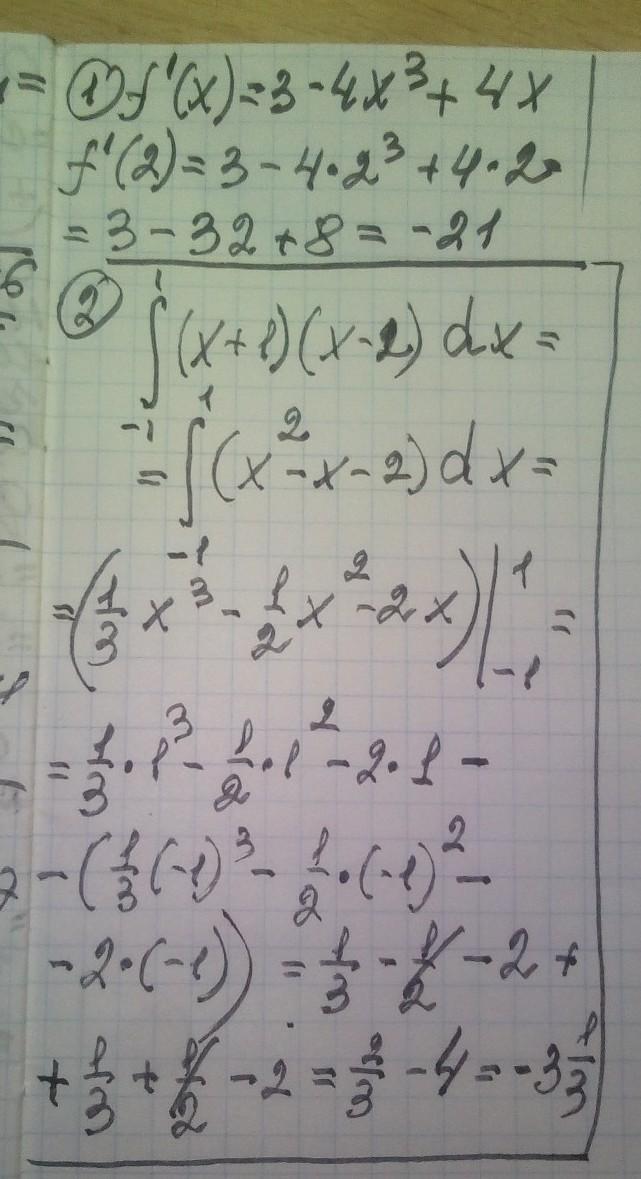 ① f'(x) = 3 - 4x³ + 4x
f'(2) = 3 - 4·2³ + 4·2 =
= 3 - 32 + 8 = -21
② ∫₋₁¹ (x+1)(x-2) dx =
= ∫₋₁¹ (x² - x - 2) dx =
= (1/3 x³ - 1/2 x² - 2x) |₋₁¹ =
= 1/3 · 1³ - 1/2 · 1² - 2·1 -
- (1/3 (-1)³ - 1/2 · (-1)² -
- 2·(-1)) = 1/3 - 1/2 - 2 +
+ 1/3 + 1/2 - 2 = 2/3 - 4 = -3 1/3